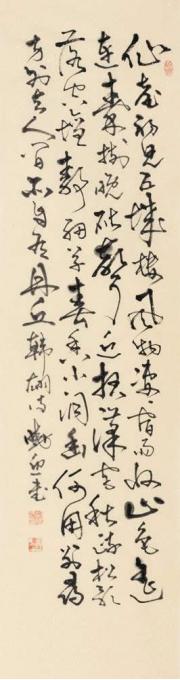 仙臺初見五城樓風物凄凄宿雨收山色遥
連秦樹晚砧聲近报漢宫秋疏松影
落空壇静細草春香小洞幽何用别尋
方外去人間亦自有丹丘韓翃詩